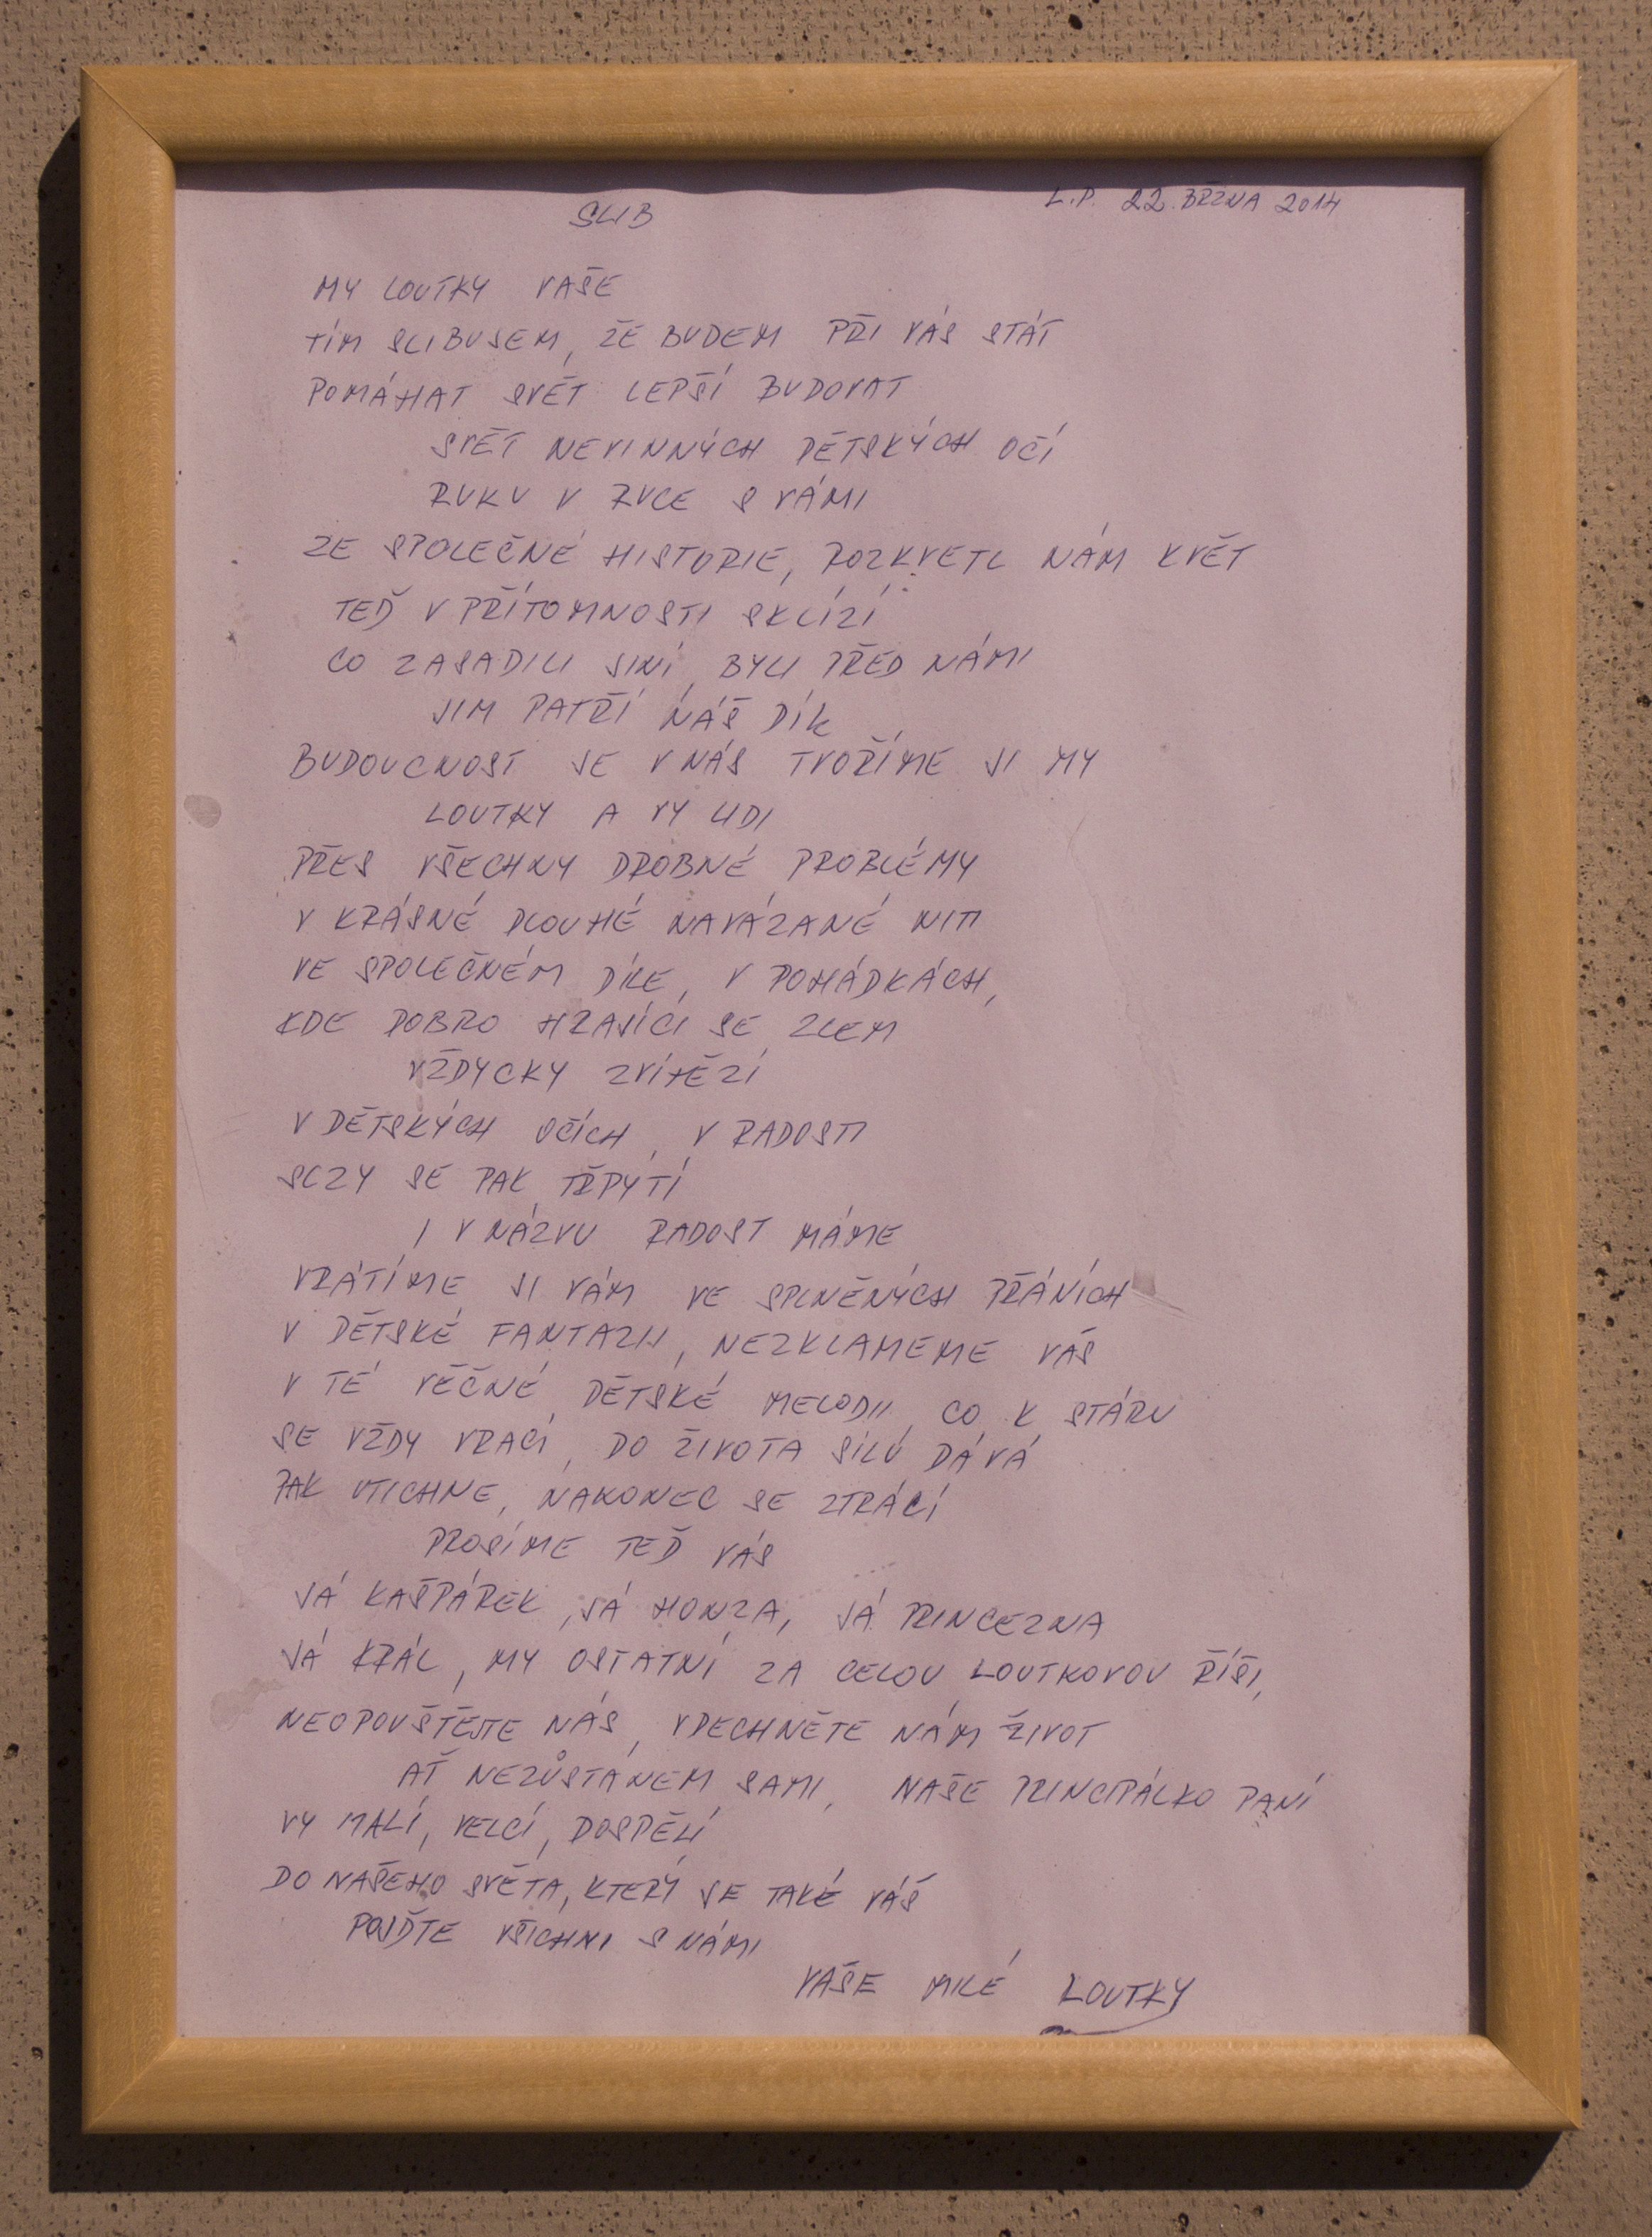 SLIB
L.P. 22. BŘZNA 2014
MY LOUTKY VAŠE
TÍM SLIBUJEM, ŽE BUDEM PŘI VÁS STÁT
POMÁHAT SVĚT LEPŠÍ BUDOVAT
SVĚT NEVINNÝCH DĚTSKÝCH OČÍ
RUKU V RUCE S VÁMI
ZE SPOLEČNÉ HISTORIE, ROZKVETL NÁM KVĚT
TEĎ V PŘÍTOMNOSTI SKLÍZÍ
CO ZASADILI JINÍ, BYLI PŘED NÁMI
JIM PATŘÍ NÁŠ DÍK
BUDOUCNOST JE V NÁS TVOŘÍME JI MY
LOUTKY A VY LIDI
PŘES VŠECHNY DROBNÉ PROBLÉMY
V KRÁSNÉ DLOUHÉ NAVÁZANÉ NITI
VE SPOLEČNÉM DÍLE, V POHÁDKÁCH,
KDE DOBRO HRAJÍCÍ SE ZLEM
VŽDYCKY ZVÍTĚZÍ
V DĚTSKÝCH OČÍCH, V RADOSTI
SLZY SE PAK TŘPYTÍ
I V NÁZVU RADOST MÁME
VRÁTÍME JI VÁM VE SPLNĚNÝCH PŘÁNÍCH
V DĚTSKÉ FANTAZII, NEZKLAMEME VÁS
V TÉ VĚČNÉ, DĚTSKÉ MELODII, CO K STÁRU
SE VŽDY VRACÍ, DO ŽIVOTA SÍLU DÁVÁ
PAK UTICHNE, NAKONEC SE ZTRÁCÍ
PROSÍME TEĎ VÁS
JÁ KAŠPÁREK, JÁ HONZA, JÁ PRINCEZNA
JÁ KRÁL, MY OSTATNÍ ZA CELOU LOUTKOVOU ŘÍŠI,
NEOPOUŠTĚJTE NÁS, VDECHNĚTE NÁM ŽIVOT
AŤ NEZŮSTÁNEM SAMI, NAŠE PRINCIPÁLKO PANÍ
VY MALÍ, VELCÍ, DOSPĚLÍ
DO NAŠEHO SVĚTA, KTERÝ JE TAKÉ VÁŠ
POJĎTE VŠICHNI S NÁMI
VAŠE MILÉ LOUTKY